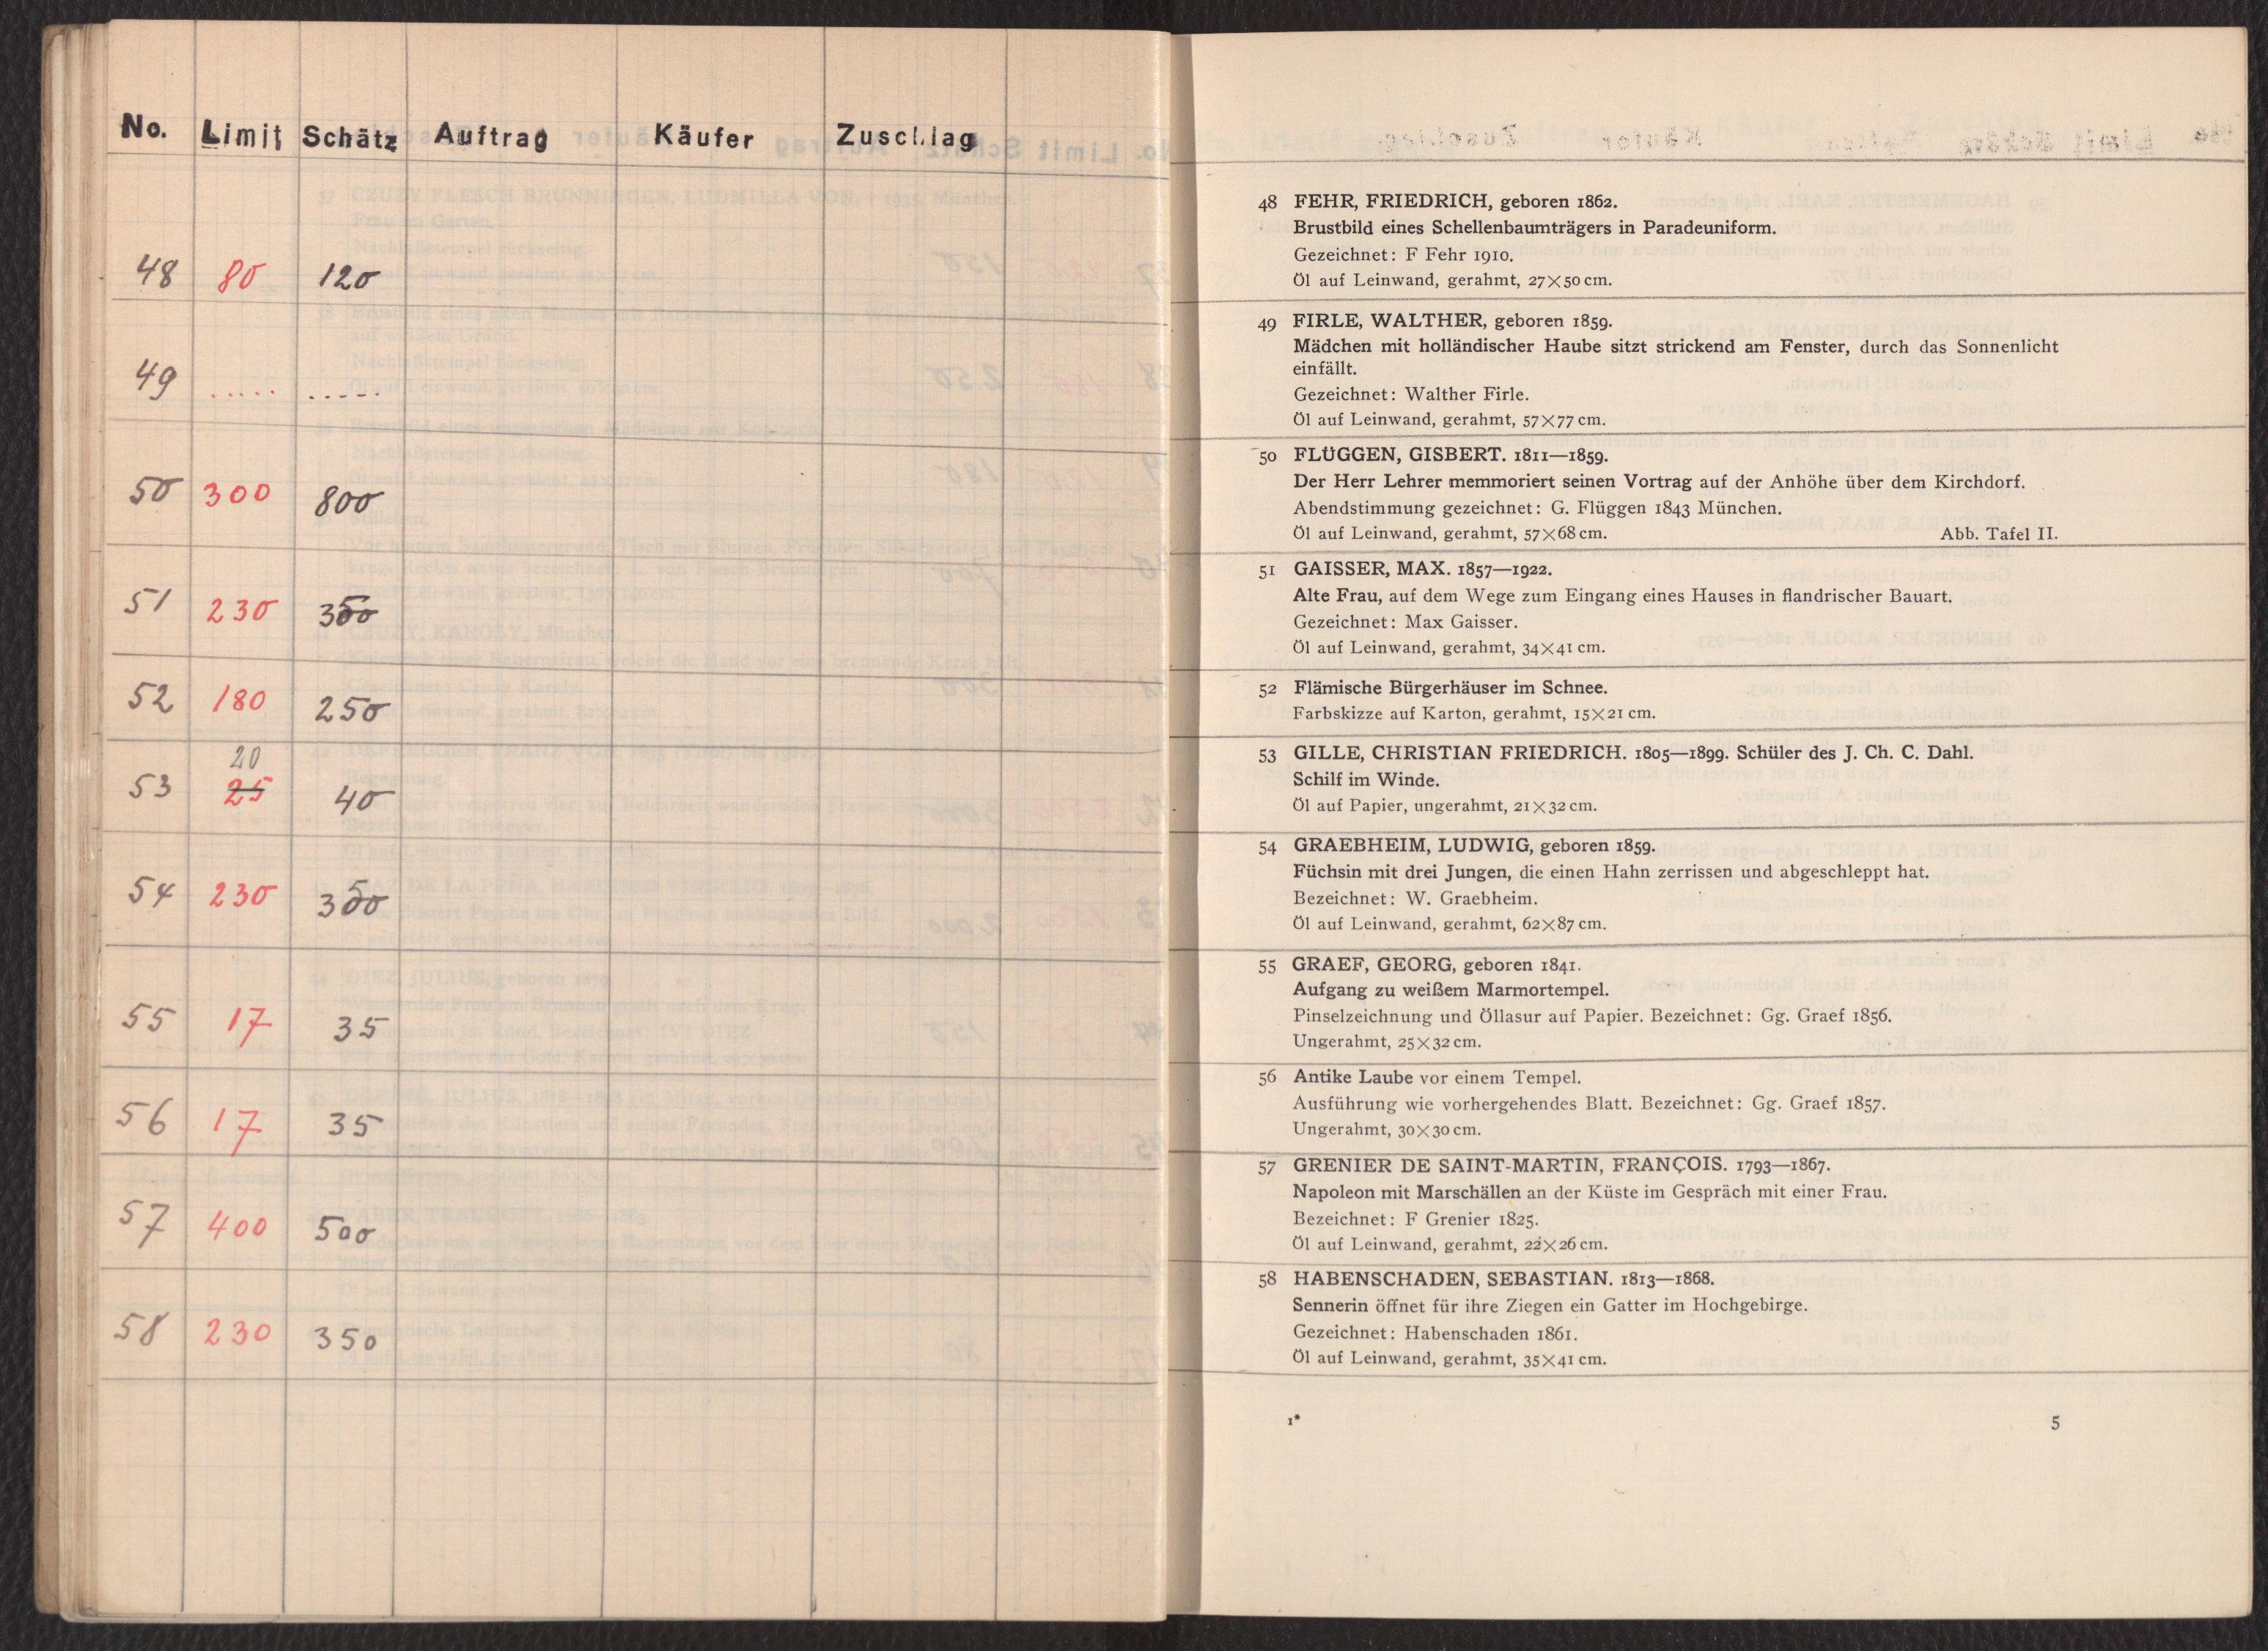 No. Limit Schätz Auftrag Käufer Zuschlag
48 80 120
49 ..... -----
50 300 800
51 230 350
52 180 250
20
53 25 40
54 230 350
55 17 35
56 17 35
57 400 500
58 230 350
48 FEHR, FRIEDRICH, geboren 1862.
Brustbild eines Schellenbaumträgers in Paradeuniform.
Gezeichnet: F Fehr 1910.
Öl auf Leinwand, gerahmt, 27×50 cm.
49 FIRLE, WALTHER, geboren 1859.
Mädchen mit holländischer Haube sitzt strickend am Fenster, durch das Sonnenlicht
einfällt.
Gezeichnet: Walther Firle.
Öl auf Leinwand, gerahmt, 57×77 cm.
50 FLÜGGEN, GISBERT. 1811—1859.
Der Herr Lehrer memmoriert seinen Vortrag auf der Anhöhe über dem Kirchdorf.
Abendstimmung gezeichnet: G. Flüggen 1843 München.
Öl auf Leinwand, gerahmt, 57×68 cm. Abb. Tafel II.
51 GAISSER, MAX. 1857—1922.
Alte Frau, auf dem Wege zum Eingang eines Hauses in flandrischer Bauart.
Gezeichnet: Max Gaisser.
Öl auf Leinwand, gerahmt, 34×41 cm.
52 Flämische Bürgerhäuser im Schnee.
Farbskizze auf Karton, gerahmt, 15×21 cm.
53 GILLE, CHRISTIAN FRIEDRICH. 1805—1899. Schüler des J. Ch. C. Dahl.
Schilf im Winde.
Öl auf Papier, ungerahmt, 21×32 cm.
54 GRAEBHEIM, LUDWIG, geboren 1859.
Füchsin mit drei Jungen, die einen Hahn zerrissen und abgeschleppt hat.
Bezeichnet: W. Graebheim.
Öl auf Leinwand, gerahmt, 62×87 cm.
55 GRAEF, GEORG, geboren 1841.
Aufgang zu weißem Marmortempel.
Pinselzeichnung und Öllasur auf Papier. Bezeichnet: Gg. Graef 1856.
Ungerahmt, 25×32 cm.
56 Antike Laube vor einem Tempel.
Ausführung wie vorhergehendes Blatt. Bezeichnet: Gg. Graef 1857.
Ungerahmt, 30×30 cm.
57 GRENIER DE SAINT-MARTIN, FRANÇOIS. 1793—1867.
Napoleon mit Marschällen an der Küste im Gespräch mit einer Frau.
Bezeichnet: F Grenier 1825.
Öl auf Leinwand, gerahmt, 22×26 cm.
58 HABENSCHADEN, SEBASTIAN. 1813—1868.
Sennerin öffnet für ihre Ziegen ein Gatter im Hochgebirge.
Gezeichnet: Habenschaden 1861.
Öl auf Leinwand, gerahmt, 35×41 cm.
1* 5